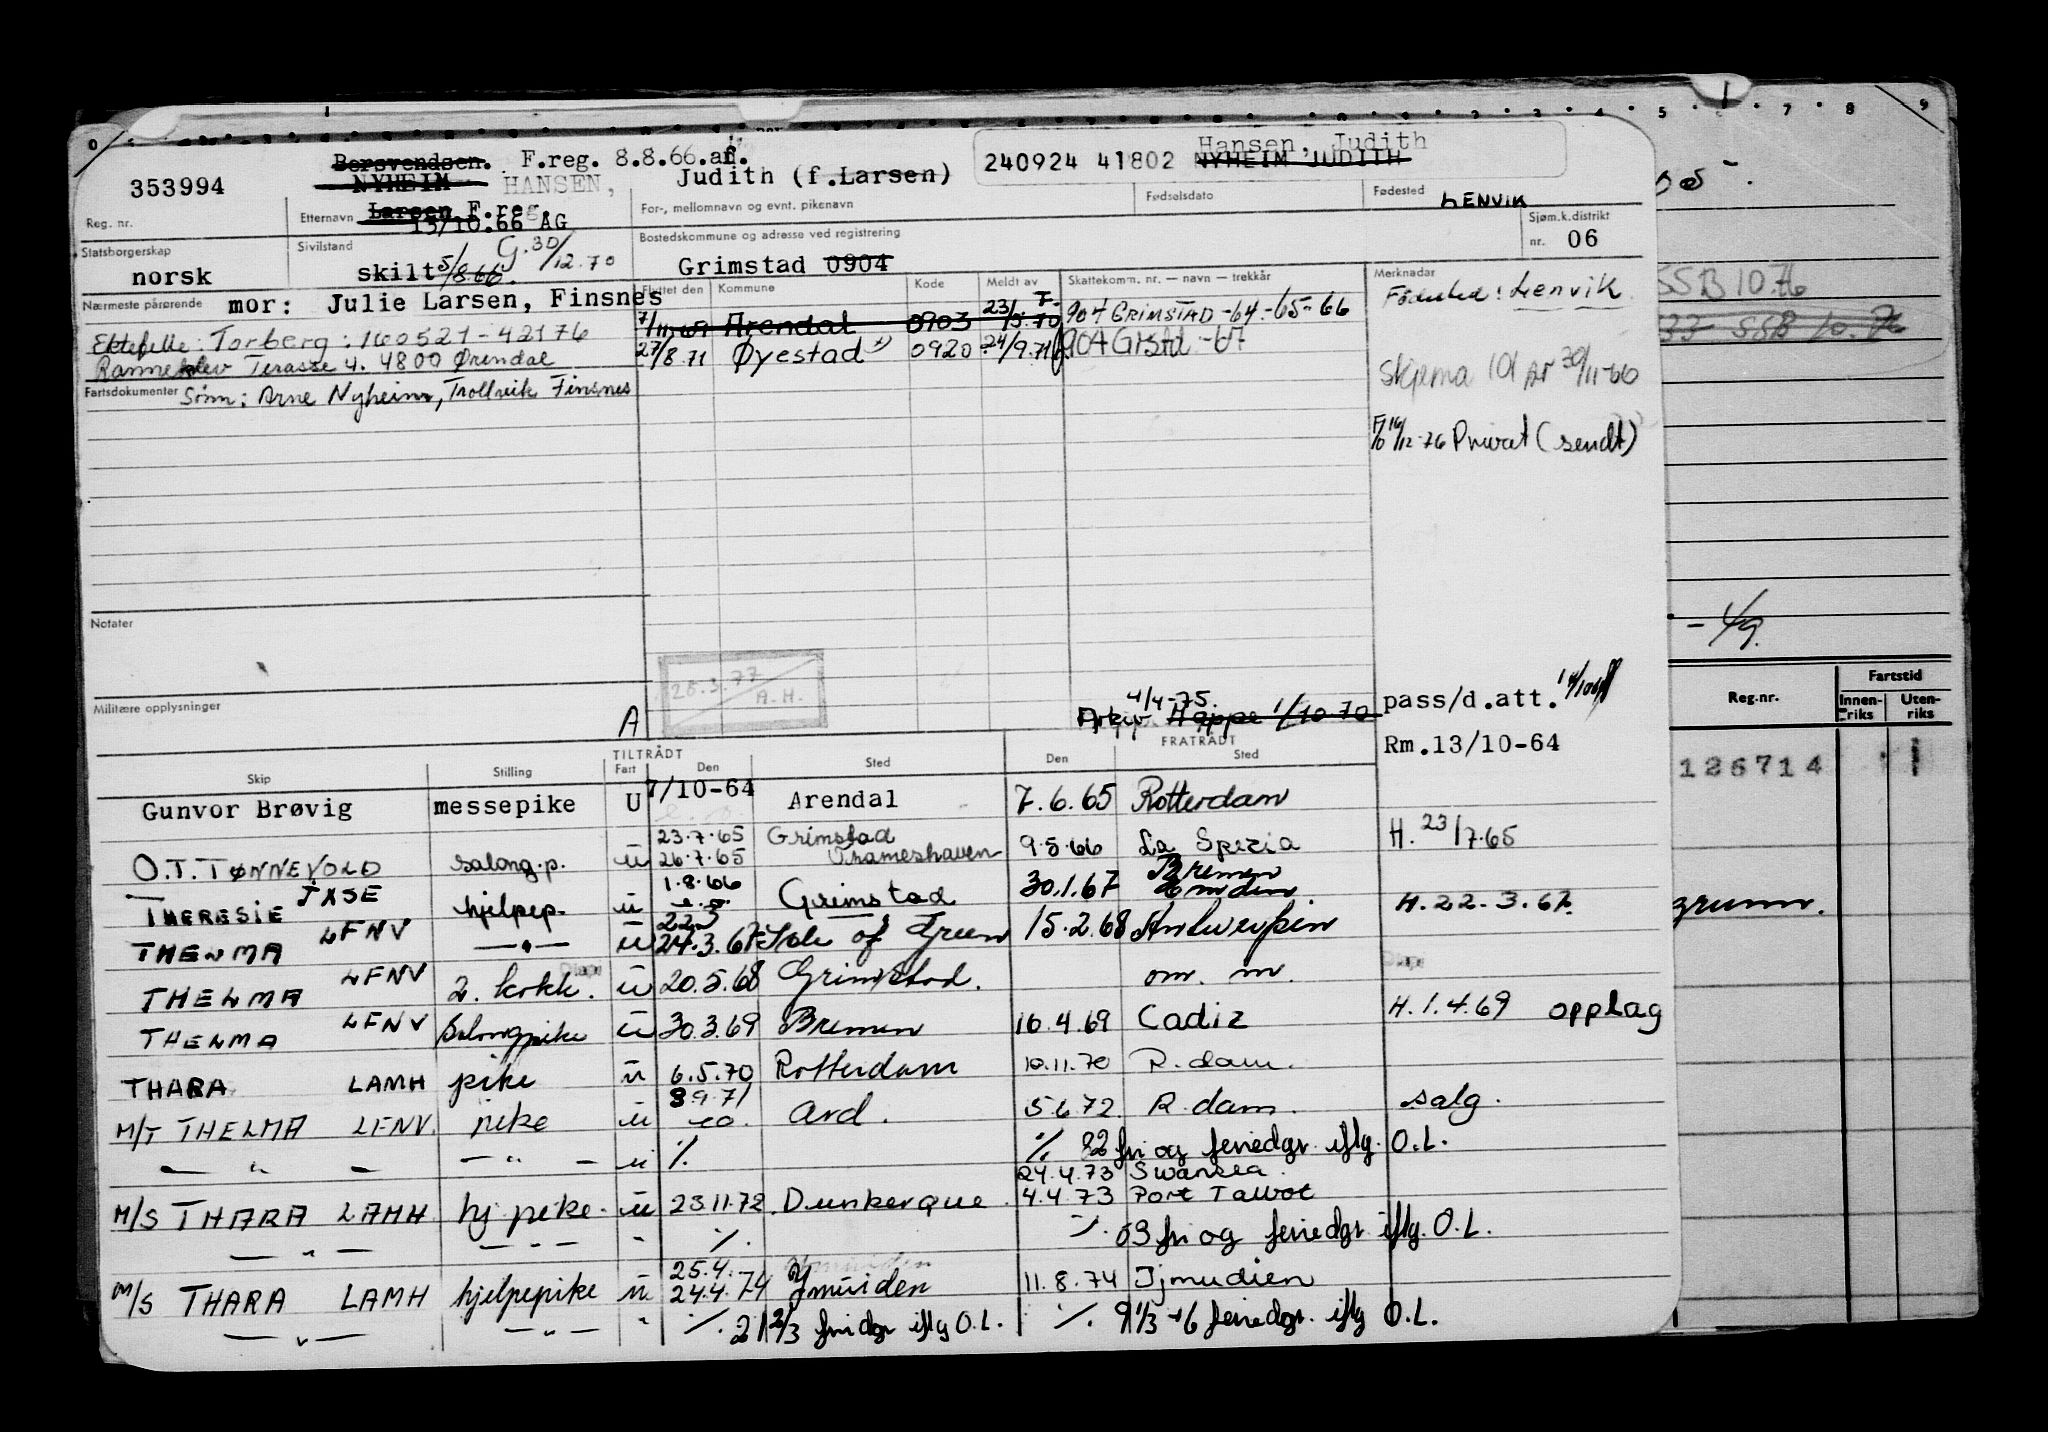 Borsvendsen. F.reg. 8.8.66.an.
240924 41802 Hansen, Judith
NYHEIM JUDITH
353994 NYHEIM HANSEN, Judith (f.Larsen)
Reg. nr. Etternavn Larsen F.reg. 13/10.66 AG
For-, mellomnavn og evnt. pikenavn Fødselsdato Fødested LENVIK
Statsborgerskap norsk
Sivilstand skilt 5/8.66. G. 30/12.70
Bostedskommune og adresse ved registrering
Grimstad 0904
Sjøm.k.distrikt nr. 06
Nærmeste pårørende mor: Julie Larsen, Finsnes
Ektefelle: Torberg: 160521-42176
Terasse 4. 4800 Arendal
Fartsdokumenter Sønn: Arne Nyheim, Trollvik Finsnes
Flyttet den Kommune Kode Meldt av Skattekomm. nr. — navn — trekkår
Arendal 0903 23/5.70 904 GRIMSTAD -64-65-66
27/8.71 Øyestad 0920 24/9.71 904 Grstd -67
Merknader
Fødested: Lenvik
Skjema 101 AP 30/11-66
12-76 Privat (sendt)
Notater
28.3.77
A.H.
Militære opplysninger
A
4/4-75.
Arkiv Høppe 1/10-70
pass/d.att.
Rm.13/10-64
TILTRÅDT FRATRÅDT
Skip Stilling Fart Den Sted Den Sted
Gunvor Brøvig messepike U 7/10-64 Arendal 7.6.65 Rotterdam
23.7.65 Grimstad
O.T. TØNNEVOLD salong.p. u 26.7.65 9.5.66 La Spezia H. 23/7.65
1.8.66 Bremen
THERESIE JXSE hjelpep. u Grimstad 30.1.67 Emden H.22.3.67.
22.3
THELMA LFNV —"— u 24.3.67 Isle of Green 15.2.68 Antwerpen
THELMA LFNV 2. kokk. u 20.5.68 Grimstad. om. m.
THELMA LFNV Salongpike u 30.3.69 Bremen 16.4.69 Cadiz H.1.4.69 opplag
THARA LAMH pike u 6.5.70 Rotterdam 10.11.70 R.dam.
8.9.71
M/T THELMA LFNV. pike u Ard. 5.6.72. R.dam. salg.
— " — — " — u ٪. ٪ 22 fri og feriedgr. iflg. O.L.
24.4.73 Swansea.
M/S THARA LAMH hj.pike. u 23.11.72. Dunkerque. 4.4.73 Port Talbot
— " — — " — " ٪. ٪. 53 fri og feriedgr. iflg. O.L.
25.4.
M/S THARA LAMH hjelpepike u 24.4.74 Ymuiden 11.8.74 Ijmudien
— " — — " — " ٪. 21 2/3 fridgr iflg O.L. ٪. 9 1/3 +6 feriedgr. iflg O.L.
SSB 10.76
- 4/9.
Reg.nr. Fartstid
Innen-riks Uten-riks
126714 1
grunn.